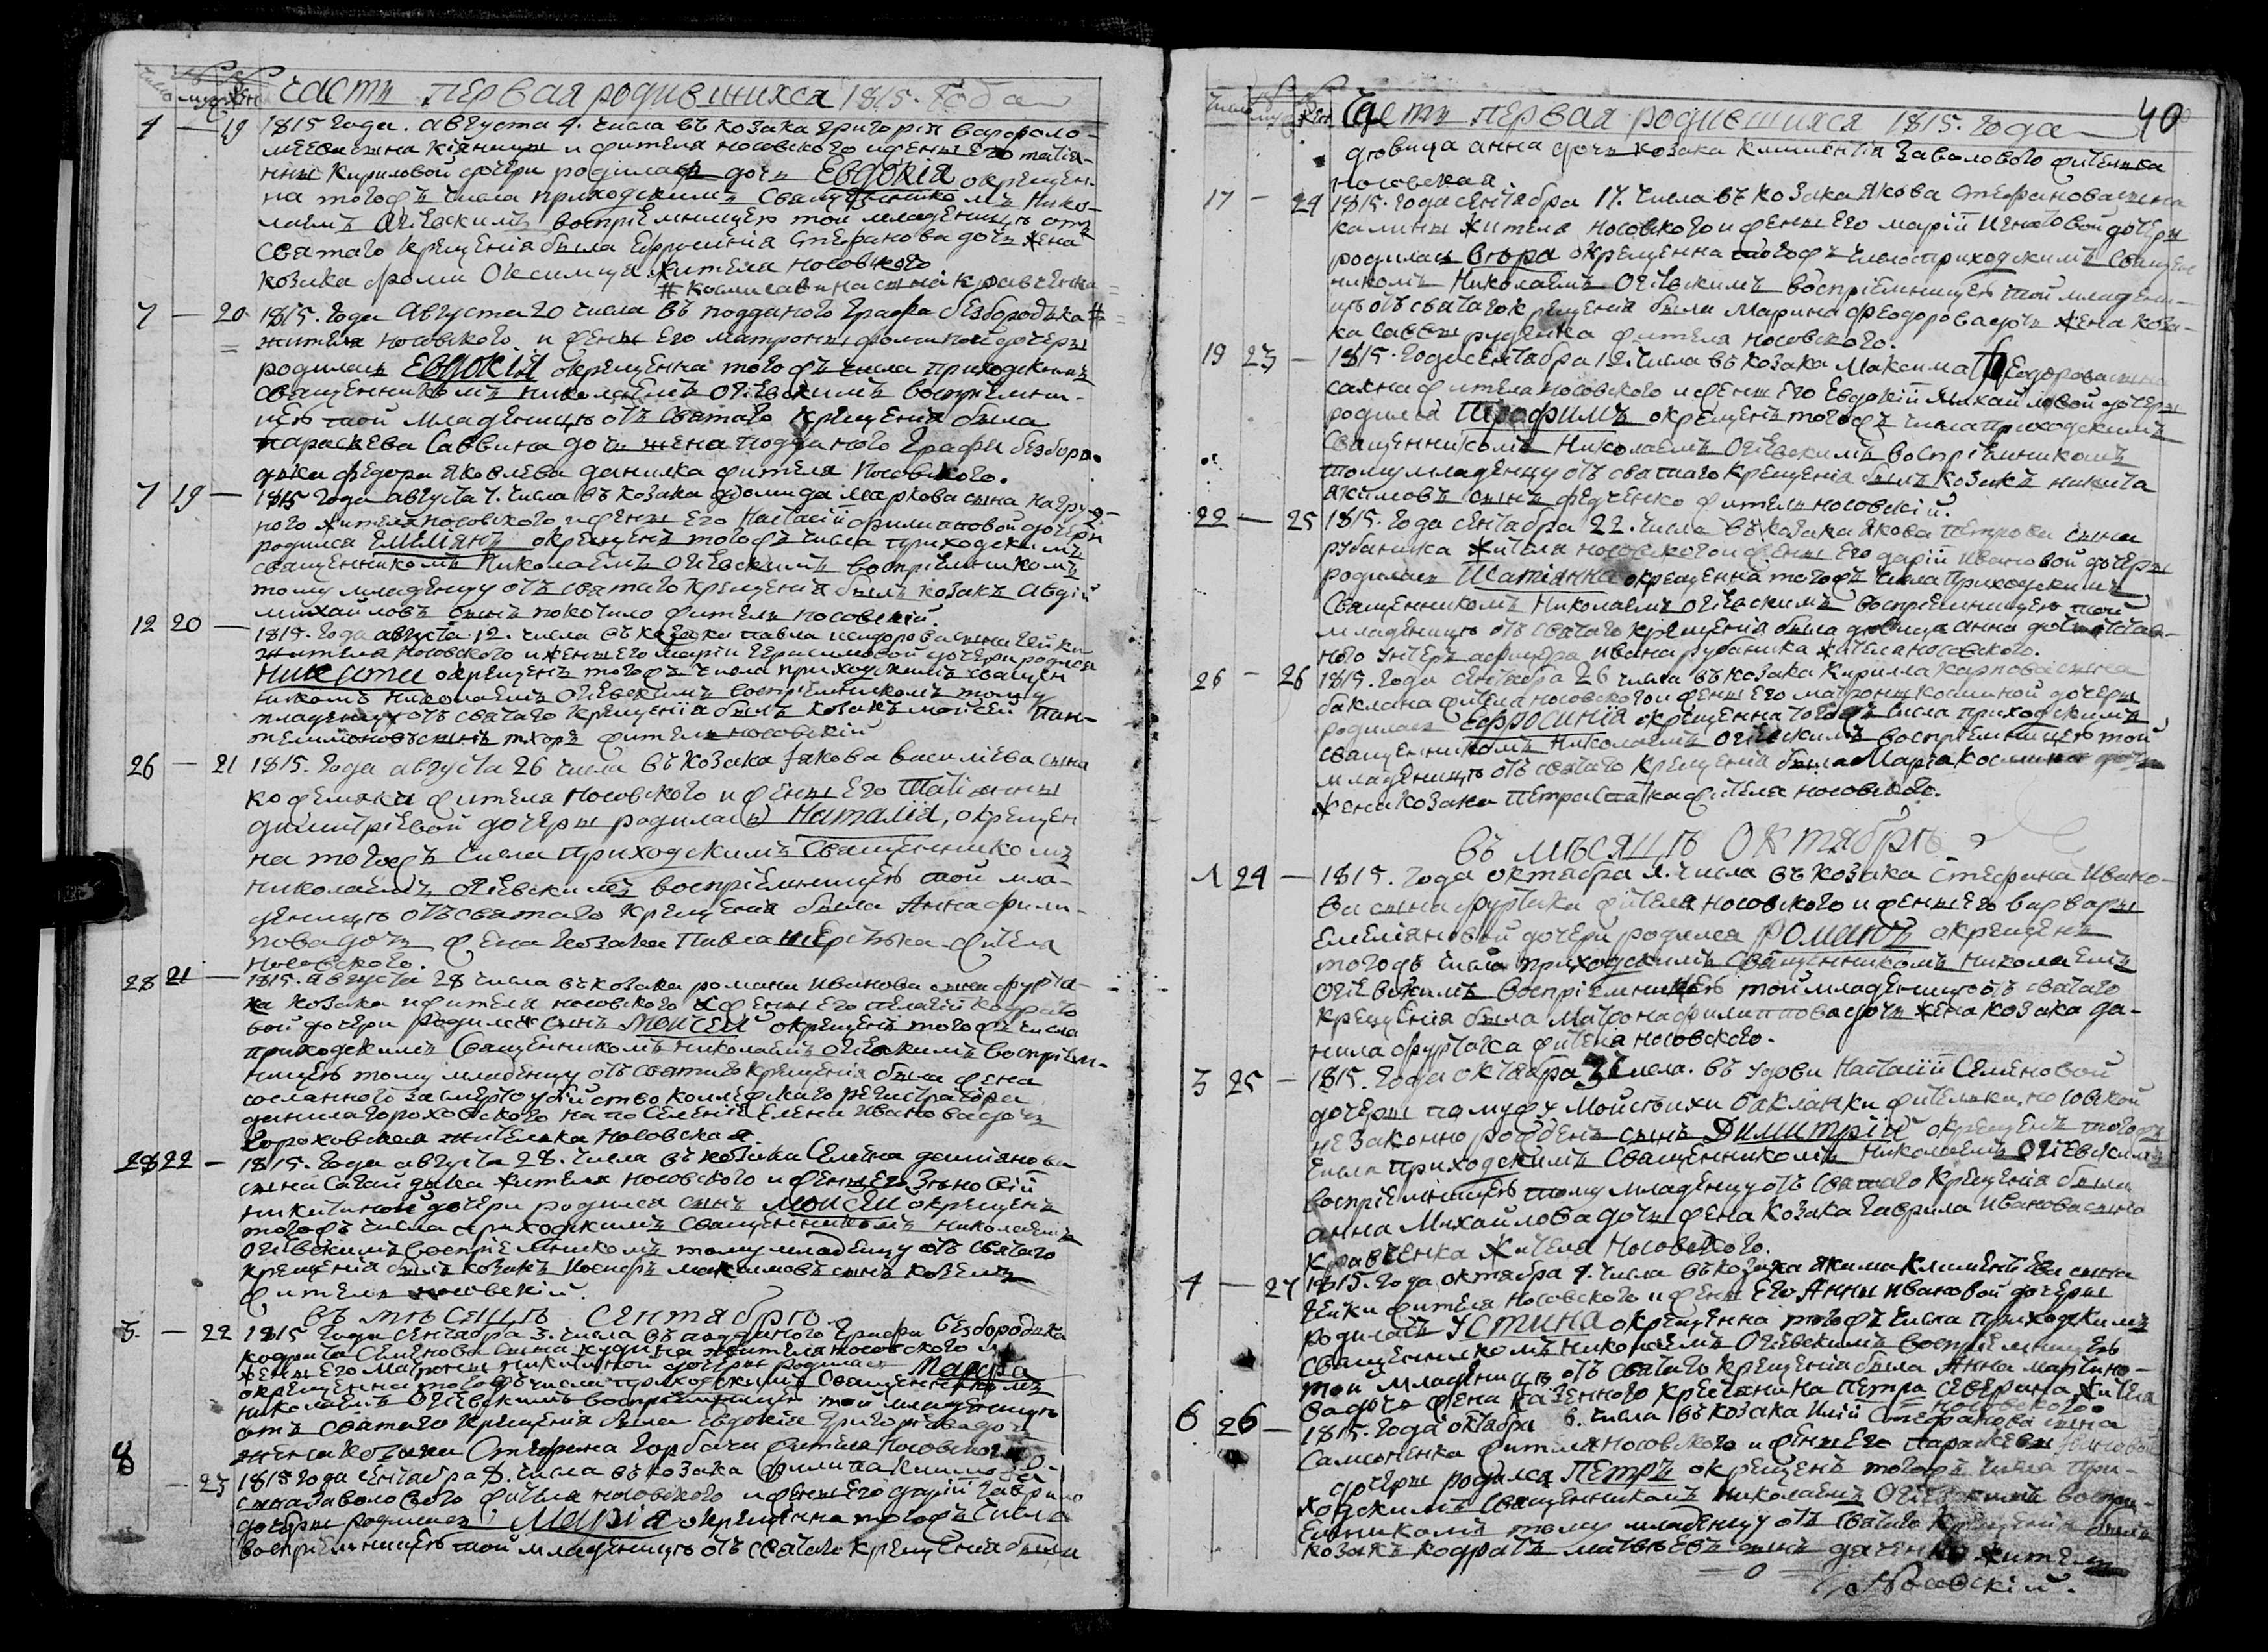 число № муж № жен
Части первая родившихся 1815. Года
4 — 19 1815 Года. августа 4. числа въ козака Григорія варфоло-
мѣева сына Кіяницы и жителя носовского и жены Его татія-
ны Кириловой дочери родилась дочь Евдокія окрещен-
на тогожъ числа приходскимъ Священникомъ Нико-
лаемъ Огіевскимъ воспріемницею той младеницѣ отъ
святаго крещенія была Ефросинія Стефанова дочь жена
козака Фомы жителя носовского
7 — 20 1815. Года Августа 20 числа въ подданого Графа безбородька #
# косми савина сына кравченка
жителя носовского и жены Его Матроны фоминой дочеры
родилась Евдокія окрещенна тогожъ числа приходскимъ
священникомъ николаемъ Огіевскимъ воспріемни-
цею той младеницѣ отъ святаго крещенія была
параскева Саввина дочь жена подданого Графа безборо-
дька федора Яковлева данилка жителя носовского.
7 19 — 1815 Года августа 7. числа въ козака маркова сына нагру-
ного жителя носовского и жены Его Настасіи филиповой дочеры
родился Емельянъ окрещенъ тогожъ числа приходскимъ
священникомъ Николаемъ Огіевскимъ воспріемникомъ
тому младенцу отъ святаго крещенія былъ козакъ Авдій
михайловъ сынъ покотило житель носовскій.
12 20 — 1815. Года августа 12. числа въ козака павла исидорова сына Гейки
жителя носовского и жены его маріи Герасимовой дочеры родился
Никита окрещенъ тогожъ числа приходскимъ священ
никомъ николаемъ Огіевскимъ воспріемникомъ тому
младенцу отъ святаго крещенія былъ козакъ мойсей пан-
телимоновъ сынъ тхоръ житель носовскій
26 — 21 1815. Года августа 26 числа въ козака Iакова василіева сына
кожемяки жителя носовского и жены Его Татіянны
димитріевой дочеры родилась Наталія, окрещен
на тогожъ числа приходскимъ Священникомъ
николаемъ Огіевскимъ воспріемницею той мла-
деницѣ отъ святаго крещенія была Анна фили-
пова дочь жена козака Павла жителя
носовского.
28 21 — 1815. августа 28 числа въ козака романа Иванова сына фурта-
ка козака и жителя носовского и жены Его пелагіи кондрато
вой дочери родился сынъ Мойсей окрещенъ тогожъ числа
приходскимъ Священникомъ николаемъ Огіевскимъ воспріем-
ницею тому младенцу отъ святаго крещенія была жена
сосланного за смертоубійство коллежского регистратора
данила гороховского на поселеніе Елена Иванова дочь
Гороховская жителька носовская.
28 22 — 1815. Года августа 28. числа въ козака Семена деміянова
сына Сагайдака жителя носовского и жены Его Зѣновіи
никитиной дочери родился сынъ Моисей окрещенъ
тогожъ числа приходскимъ священникомъ николаемъ
Огіевскимъ воспріемникомъ тому младенцу отъ святаго
крещенія былъ козакъ Иосифъ максимовъ сынъ козелъ
житель носовскій.
въ мѣсяцѣ сентябрѣ.
3. — 22 1815 Года сентября 3. числа въ подданого Графа безбородька
кодрата Семенова сына кудина жителя носовского и
жены его Матроны никитиной дочеры родилась Марфа
окрещенна тогожъ числа приходскимъ священникомъ
николаемъ Огіевскимъ воспріемницею той младеницѣ
отъ святаго крещенія была Евдокія Григоріева дочь
жена козака Стефана Горбача жителя носовского
8 — 23 1815 Года сентября 8. числа въ козака филипа климов
сына Заволового жителя носовского и жены Его дарій гаврило
дочеры родилась Марія окрещенна тогожъ числа
воспріемницею той младеницѣ отъ святаго крещенія была
40
число № муж № жен
Части первая родившихся 1815. Года
дѣвица анна дочь козака климентія Заволового жителька
носовская
17 — 24 1815. Года сентября 17. числа въ козака якова Стефанова сына
калины жителя носовского и жены Его маріи Игнатовой дочеры
родилась вѣра окрещенна тогожъ числа приходскимъ Священ
никомъ Николаемъ Огіевскимъ воспріемницею той младени-
цѣ отъ святаго крещенія была Марина феодорова дочь жена коза-
ка саввы руденка жителя носовского.
19 23 — 1815. Года сентября 19. числа въ козака Максима Феодорова сына
жителя носовского и жены Его Евдокіи Михайловой дочеры
родился Трофимъ окрещенъ тогожъ числа приходскимъ
Священникомъ Николаемъ Огіевскимъ воспріемникомъ
тому младенцу отъ святаго крещенія былъ козакъ никита
якимовъ сынъ федченко житель носовскій.
22 — 25 1815. Года сентября 22. числа въ козака якова петрова сына
рубаника жителя носовского и жены Его дарій ивановой дочеры
родилась Татіянна окрещенна тогожъ числа приходскимъ
Священникомъ Николаемъ Огіевскимъ воспріемницею той
младеницѣ отъ святаго крещенія была дѣвица анна дочь отстав-
ного унтеръ афицера ивана рубаника жителя носовского.
26 — 26 1815. Года сентября 26 числа въ козака Кирила Карпова сына
баклана жителя носовского и жены Его матроны косминой дочеры
родилась Ефросинія окрещенна тогожъ числа приходскимъ
священникомъ Николаемъ Огіевскимъ воспріемницею той
младеницѣ отъ святаго крещенія была Марія космина дочь
жена козака петра жителя носовского.
въ мѣсяцѣ Октябрѣ
1 24 — 1815. Года октября 1. числа въ козака Стефана Ивано-
ва сына фуртака жителя носовского и жены Его варвары
Емеліяновой дочери родился Романъ окрещенъ
тогожъ числа приходскимъ Священникомъ николаемъ
Огіевскимъ воспріемницею той младеницѣ отъ святаго
крещенія была Матрона филиппова дочь жена козака да-
нила фуртака жителя носовского.
3 25 — 1815. Года октября 3 числа. въ удовы Настасіи Семеновой
дочеры по мужу Мойсѣихи бакланки жительки носовской
незаконно рожденъ сынъ Димитрій окрещенъ тогожъ
числа приходскимъ Священникомъ Николаемъ Огіевскимъ
воспріемницею тому младенцу отъ святаго крещенія была
анна Михайлова дочь жена козака гаврила Иванова сына
кравченка жителя носовского.
4 — 27 1815. Года октября 4. числа въ козака якима климентіева сына
Гейки жителя носовского и жены Его Анны ивановой дочеры
родилась Устина окрещенна тогожъ числа приходскимъ
священникомъ николаемъ Огіевскимъ воспріемницею
той младеницѣ отъ святаго крещенія была Анна мартино-
ва дочь жена казенного крестянина петра северина жителя
носовского.
6 26 — 1815. Года октября 6. числа въ козака Иліи Стефанова сына
Самсоненка жителя носовского и жены Его параскевы
дочеры родился Петръ окрещенъ тогожъ числа при-
ходскимъ священникомъ николаемъ Огіевскимъ воспрі-
емникомъ тому младенцу отъ святаго крещенія былъ
козакъ кодратъ матвѣевъ сынъ даченко житель
Носовскій.